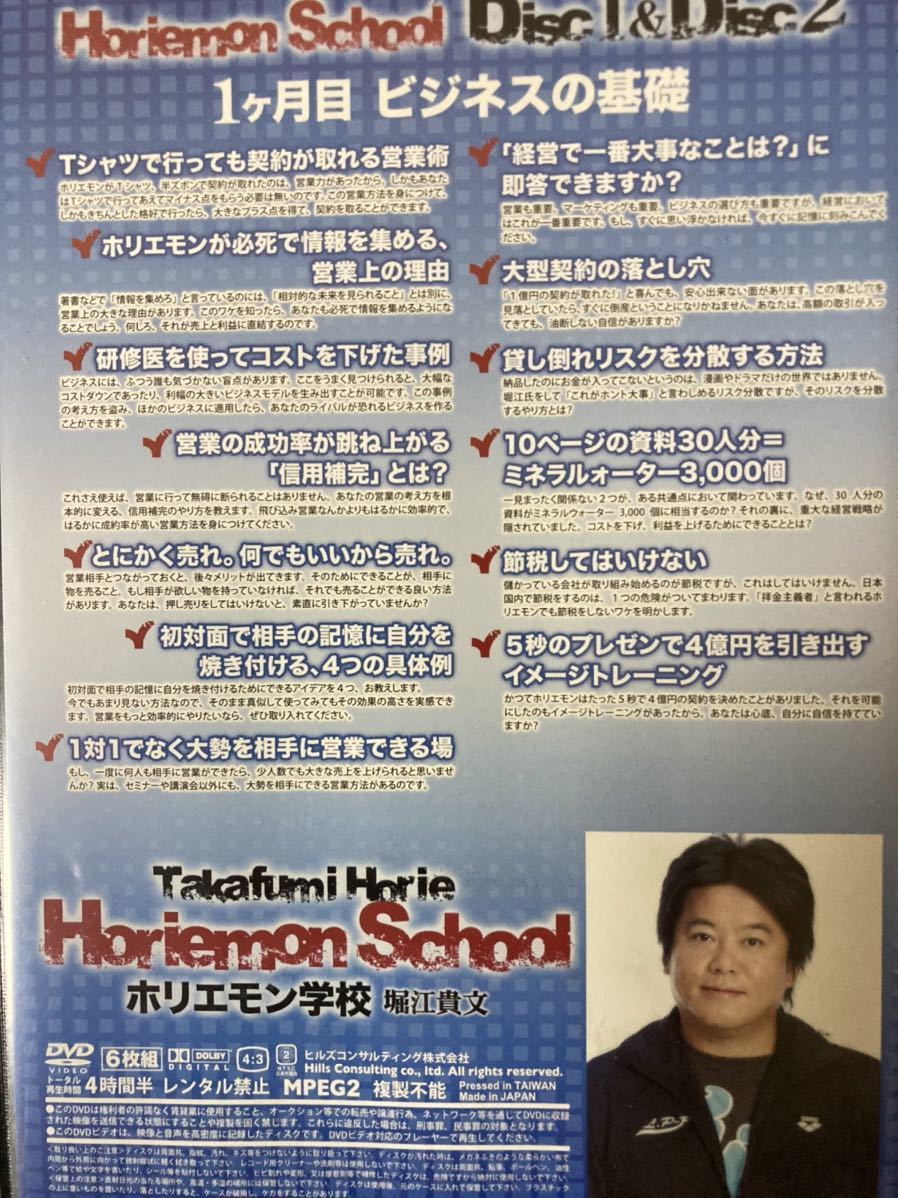 Horiemon School Disc1&Disc2
1ヶ月目 ビジネスの基礎
Tシャツで行っても契約が取れる営業術
ホリエモンがTシャツ、半ズボンで契約が取れたのは、営業力があったから。しかもあなた
はTシャツで行ってあえてマイナス点をもらう必要は無いのです。この営業方法を身につけて、
しかもきちんとした格好で行ったら、大きなプラス点を得て、契約を取ることができます。
ホリエモンが必死で情報を集める、
営業上の理由
著書などで「情報を集めろ」と言っているのには、「相対的な未来を見られること」とは別に、
営業上の大きな理由があります。このワケを知ったら、あなたも必死で情報を集めるようにな
ることでしょう。何しろ、それが売上と利益に直結するのです。
研修医を使ってコストを下げた事例
ビジネスには、ふつう誰も気づかない盲点があります。ここをうまく見つけられると、大幅な
コストダウンであったり、利幅の大きいビジネスモデルを生み出すことが可能です。この事例
の考え方を盗み、ほかのビジネスに適用したら、あなたのライバルが恐れるビジネスを作る
ことができます。
営業の成功率が跳ね上がる
「信用補完」とは?
これさえ使えば、営業に行って無碍に断られることはありません。あなたの営業の考え方を根
本的に変える、信用補完のやり方を教えます。飛び込み営業なんかよりもはるかに効率的で、
はるかに成約率が高い営業方法を身につけてください。
とにかく売れ。何でもいいから売れ。
営業相手とつながっておくと、後々メリットが出てきます。そのためにできることが、相手に
物を売ること。もし相手が欲しい物を持っていなければ、それでも売ることができる良い方法
があります。あなたは、押し売りをしてはいけないと、素直に引き下がっていませんか?
初対面で相手の記憶に自分を
焼き付ける、4つの具体例
初対面で相手の記憶に自分を焼き付けるためにできるアイデアを4つ、お教えします。
今でもあまり見ない方法なので、そのまま真似して使ってみてもその効果の高さを実感できま
す。営業をもっと効率的にやりたいなら、ぜひ取り入れてください。
1対1でなく大勢を相手に営業できる場
もし、一度に何人も相手に営業ができたら、少人数でも大きな売上を上げられると思いませ
んか?実は、セミナーや講演会以外にも、大勢を相手にできる営業方法があるのです。
「経営で一番大事なことは?」に
即答できますか?
営業も重要、マーケティングも重要、ビジネスの選び方も重要ですが、経営において
はこれが一番重要です。もし、すぐに思い浮かなければ、今すぐに記憶に刻みこんでく
ださい。
大型契約の落とし穴
「1億円の契約が取れた!」と喜んでも、安心出来ない面があります。この落とし穴を
見落としていたら、すぐに倒産ということになりかねません。あなたは、高額の取引が入っ
てきても、油断しない自信がありますか?
貸し倒れリスクを分散する方法
納品したのにお金が入ってこないというのは、漫画やドラマだけの世界ではありません。
堀江氏をして「これがホント大事」と言わしめるリスク分散ですが、そのリスクを分散
するやり方とは?
10ページの資料30人分=
ミネラルォーター3,000個
一見まったく関係ない2つが、ある共通点において関わっています。なぜ、30人分の
資料がミネラルウォーター3,000個に相当するのか?それの裏に、重大な経営戦略が
隠されていました。コストを下げ、利益を上げるためにできることとは?
節税してはいけない
儲かっている会社が取り組み始めるのが節税ですが、これはしてはいけません。日本
国内で節税をするのは、1つの危険がついてまわります。「拝金主義者」と言われるホ
リエモンでも節税をしないワケを明かします。
5秒のプレゼンで4億円を引き出す
イメージトレーニング
かつてホリエモンはたった5秒で4億円の契約を決めたことがありました。それを可能
にしたのもイメージトレーニングがあったから。あなたは心底、自分に自信を持ててい
ますか?
Takafumi Horie
Horiemon School
ホリエモン学校 堀江貴文
DVD VIDEO 6枚組 DOLBY DIGITAL 4:3 2 NTSC 日本市場向 ヒルズコンサルティング株式会社
Hills Consulting co., ltd. All rights reserved.
トータル再生時間 4時間半 レンタル禁止 MPEG2 複製不能 Pressed in TAIWAN
Made in JAPAN
●このDVDは権利者の許諾なく賃貸業に使用すること、オークション等での転売や譲渡行為、ネットワーク等を通じてDVDに収録
された映像を送信できる状態にすることや複製を固く禁じます。これらに違反した場合は、刑事罪、民事罪の対象となります。
●このDVDビデオは、映像と音声を高密度に記録したディスクです。DVDビデオ対応のプレーヤーで再生してください。
<取り扱い上のご注意>ディスクは両面共、指紋、汚れ、キズ等をつけないように取り扱って下さい。ディスクが汚れた時は、メガネふきのような柔らかい布で
内周から外周に向かって放射線状に軽く拭き取って下さい。レコード用クリーナーや洗剤等は使用しないで下さい。ディスクは両面共、鉛筆、ボールペン、油性
ペン等で絵や文字を書いたり、シール等を貼付しないで下さい。ヒビ割れや変形、又は接着剤等で補修したディスクは、危険ですから絶対に使用しないで下さい。
<保管上の注意>直射日光の当たる場所や、高温・多湿の場所には保管しないで下さい。ディスクは使用後、元のケースに入れて保管して下さい。プラスチック
の上に重いものを置いたり、落としたりすると、ケースが破損し、ケガをすることがあります。